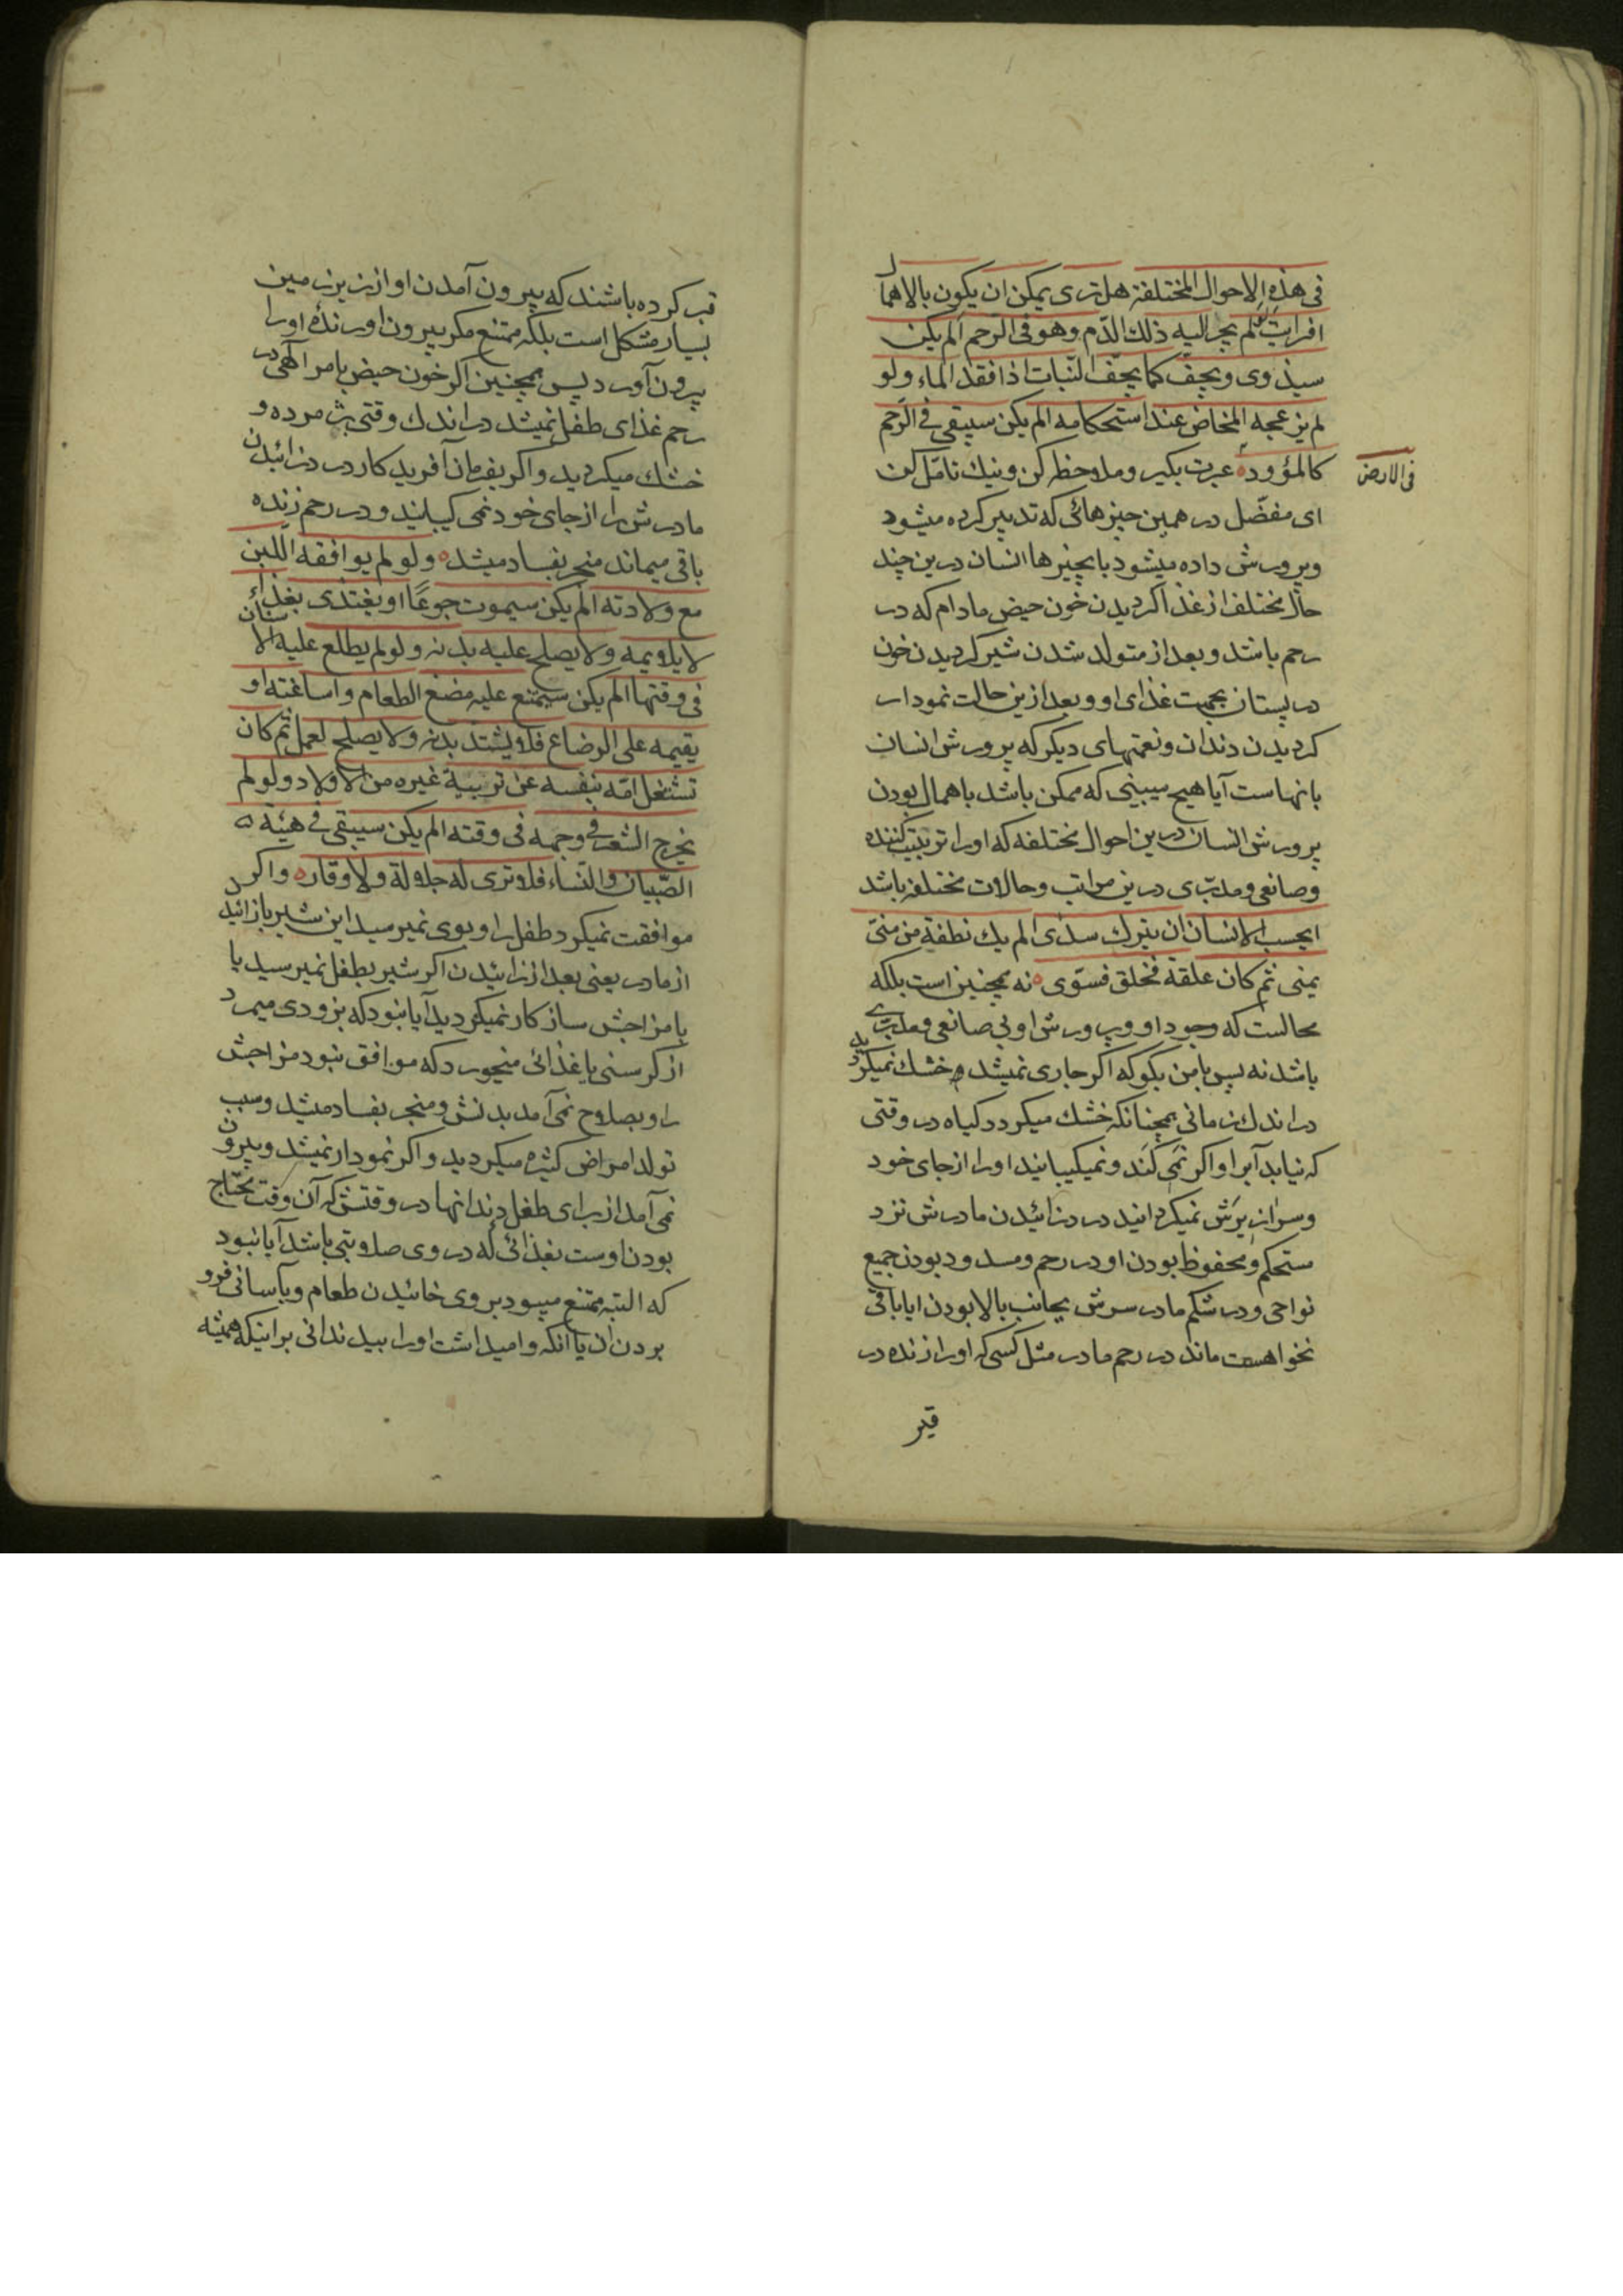 فی هذه الاحوال المختلفة هل تری یمکن ان یکون بالاهمال
افرایت لو لم یجر الیه ذلك الدّم وهو فی الرّحم الم یکن
سیذوی ویجف کما یجف النّبات اذا فقد الماء ولو
لم یزعجه المخاض عند استحکامه الم یکن سیبقی فی الرّحم
کالمؤوده عبرت بکیر و ملاحظه کن ونیك تامّل کن
فی الارض
ای مفضّل در همین چیزهائی که تدبیر کرده میشود
وپرورش داده میشود باین چیزها انسان درین چند
حال مختلف از غذا کردیدن خون حیض مادام که در
رحم باشد و بعد از متولد شدن شیر کردیدن خون
در پستان بجهت غذای او و بعد ازین حالت نمودار
کردیدن دندان و نعمتهای دیکر که پرورش انسان
بانهاست آیا هیچ میبینی که ممکن باشد باهمال بودن
پرورش انسان درین احوال مختلفه که او را تربیت کننده
وصانعی ومدبّری درین مراتب وحالات مختلفه باشد
ایحسب الانسان ان یترك سدی الم یك نطفة من منیّ
یمنی ثم کان علقة فخلق فسوّی نه همچنین است بلکه
محالست که وجود او و پرورش او بی صانعی ومدبّری
باشد نه پس بامن بکو که اکر جاری نمیشد خشك نمیکردید
در اندك زمانی همچنانکه خشك میکردد کیاه در وقتی
که نیابد آبرا و اکر نمی کَند ونمیکیبانید او را از جای خود
وسرازیرَش نمیکردانید درد زائیدن مادرش نزد
مستحکم ومحفوظ بودن او در رحم ومسدود بودن جمیع
نواحی ودر شکم مادر سرش بجانب بالا بودن ایا باقی
نخواهست ماند در رحم مادر مثل کسی که او را زنده در
قبر
قبر کرده باشند که بیرون آمدن او از زیر زمین
بسیار مشکل است بلکه ممتنع مکر بیرون اورنده او را
بیرون آورد پس همچنین اکر خون حیض بامر آلهی در
رحم غذای طفل نمیشد در اندك وقتی پژمرده و
خشك میکردید و اکر بفرمان آفریدکار درد زائیدن
مادرش را از جای خود نمی کیبانید و در رحم زنده
باقی میماند منجر بفساد میشد ولو لم یوافقه اللبن
مع ولادته الم یکن سیموت جوعًا او یغتذی بغذاء
لا یلایمه ولا یصلح علیه بدنه ولو لم یطلع علیه الاسنان
فی وقتها الم یکن سیمتنع علیه مضغ الطعام واساغته او
یقیمه علی الرضاع فلا یشتد بدنه ولا یصلح لعمل ثم کان
تشتغل امّه بنفسه عن تربیة غیره من الاولاد ولو لم
یخرج الشعر فی وجهه فی وقته الم یکن سیبقی فی هیئة
الصّبیان والنّساء فلا تری له جلالة ولا وقار واکر
موافقت نمیکرد طفل را وبوی نمیرسید این شیر بازائیدن
از مادر یعنی بعد از زائیدن اکر شیر بطفل نمیرسید یا
بامزاجش سازکار نمیکردید آیا نبود که بزودی میمرد
از کرسنی یا غذائی میخورد که موافق نبود مزاجش
را و بصلاح نمی آمد بدنش ومنجر بفساد میشد وسبب
تولد امراض کثیره میکردید و اکر نمودار نمیشد و بیرون
نمی آمد از برای طفل دندانها در وقتش که آن وقت محتاج
بودن اوست بغذائی که در وی صلابتی باشد آیا نبود
که البته ممتنع میبود بر وی خائیدن طعام وبآسانی فرو
بردن آن یا آنکه وامیداشت او را بیدندانی بر اینکه همیشه